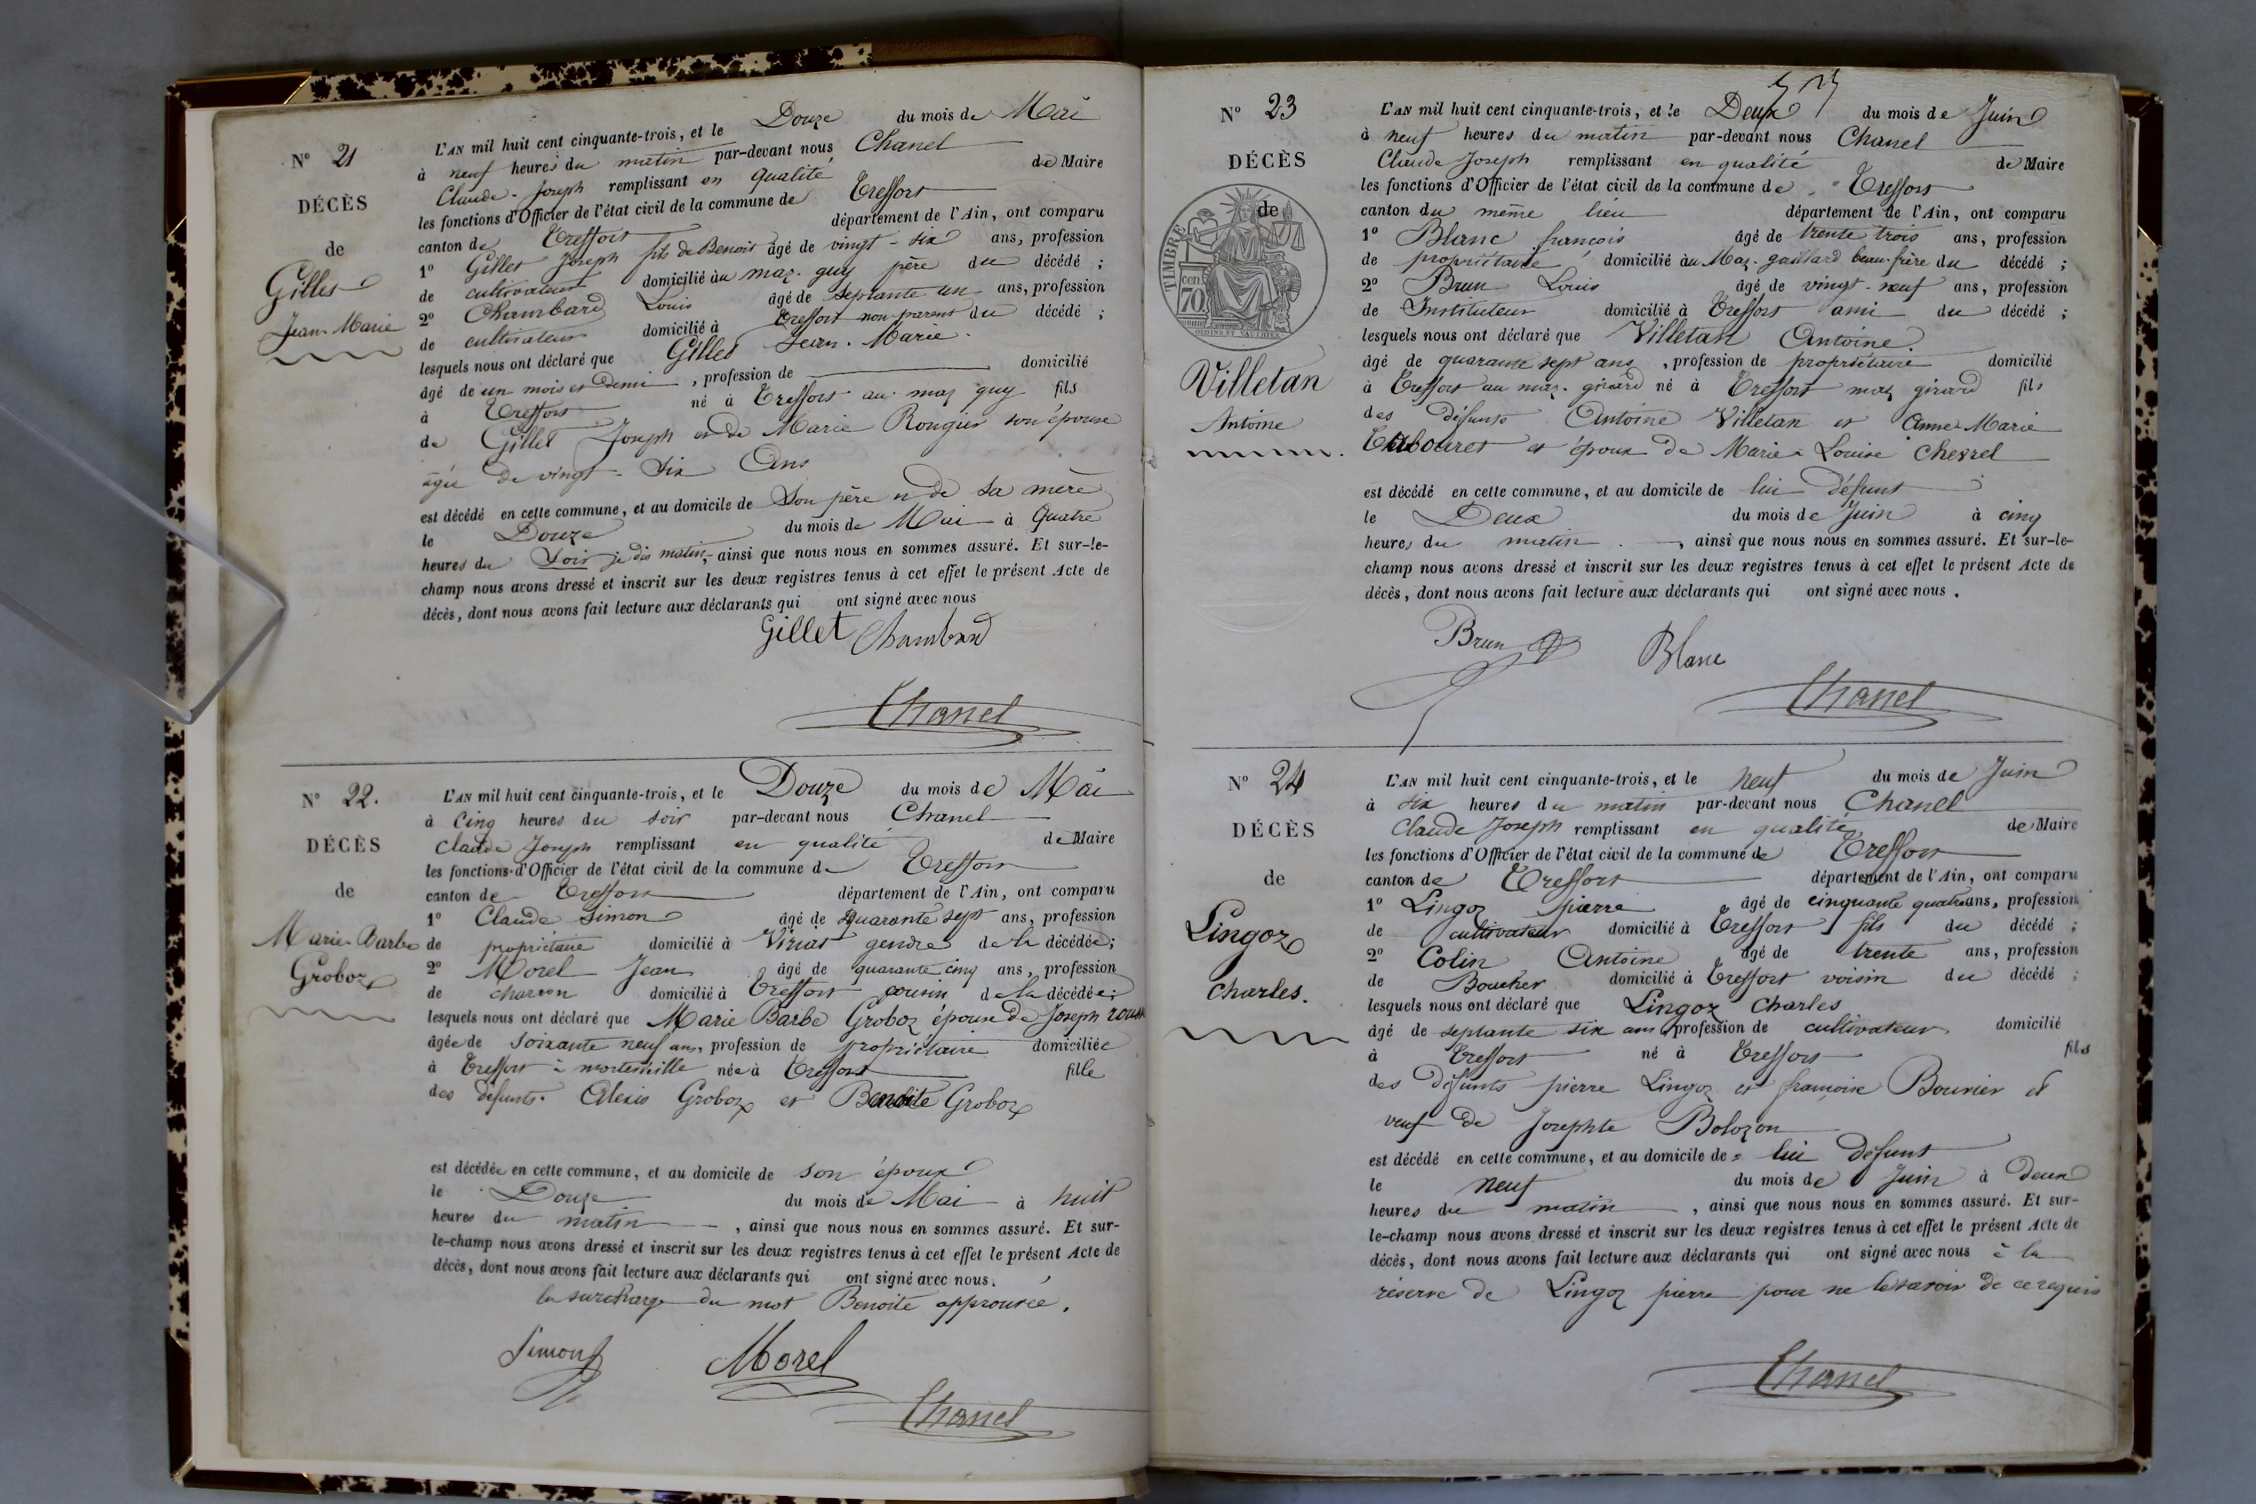 N° 21
DÉCÈS
de
Gillet
Jean-Marie
L'AN mil huit cent cinquante-trois, et le Douze du mois de Mai
à neuf heures du matin par-devant nous Chanel
Claude-Joseph remplissant en qualité de Maire
les fonctions d'Officier de l'état civil de la commune de Treffort
canton de Treffort département de l'Ain, ont comparu
1° Gillet Joseph fils de Benoit âgé de vingt-six ans, profession
de cultivateur domicilié au maz. guy père du décédé ;
2° Chambard Louis âgé de septante un ans, profession
de cultivateur domicilié à Treffort non parent du décédé ;
lesquels nous ont déclaré que Gillet Jean-Marie
âgé de un mois et demi , profession de domicilié
à Treffort né à Treffort au maz guy fils
de Gillet Joseph et de Marie Rongier son épouse
âgée de vingt-six Ans
est décédé en cette commune, et au domicile de Son père et de sa mère
le Douze du mois de Mai à Quatre
heures du soir je dis matin, ainsi que nous nous en sommes assuré. Et sur-le-
champ nous avons dressé et inscrit sur les deux registres tenus à cet effet le présent Acte de
décès, dont nous avons fait lecture aux déclarants qui ont signé avec nous
Gillet Chambard
Chanel
N° 22.
DÉCÈS
de
Marie-Barbe
Groboz
L'AN mil huit cent cinquante-trois, et le Douze du mois de Mai
à Cinq heures du soir par-devant nous Chanel
Claude Joseph remplissant en qualité de Maire
les fonctions d'Officier de l'état civil de la commune de Treffort
canton de Treffort département de l'Ain, ont comparu
1° Claude Simon âgé de quarante sept ans, profession
de propriétaire domicilié à Viriat gendre de la décédée;
2° Morel Jean âgé de quarante cinq ans, profession
de charron domicilié à Treffort cousin de la décédée;
lesquels nous ont déclaré que Marie Barbe Groboz épouse de Joseph
âgée de soixante neuf ans, profession de propriétaire domiciliée
à Treffort à née à Treffort fille
des défunts Alexis Groboz et Benoite Groboz
est décédée en cette commune, et au domicile de son époux
le Douze du mois de Mai à huit
heures du matin , ainsi que nous nous en sommes assuré. Et sur-
le-champ nous avons dressé et inscrit sur les deux registres tenus à cet effet le présent Acte de
décès, dont nous avons fait lecture aux déclarants qui ont signé avec nous.
la surcharge du mot Benoite approuvée.
Simon Morel
Chanel
N° 23
DÉCÈS
de
TIMBRE
70 cen
Villetan
Antoine
L'AN mil huit cent cinquante-trois, et le Deux du mois de Juin
à neuf heures du matin par-devant nous Chanel
Claude Joseph remplissant en qualité de Maire
les fonctions d'Officier de l'état civil de la commune de Treffort
canton du même lieu département de l'Ain, ont comparu
1° Blanc françois âgé de trente trois ans, profession
de propriétaire domicilié au Maz. gaillard beau-frère du décédé ;
2° Brun Louis âgé de vingt-neuf ans, profession
de Instituteur domicilié à Treffort ami du décédé ;
lesquels nous ont déclaré que Villetan Antoine
âgé de quarante sept ans , profession de propriétaire domicilié
à Treffort au maz. girard né à Treffort maz girard fils
des défunts Antoine Villetan et Anne-Marie
Tabouret et époux de Marie-Louise Chevrel
est décédé en cette commune, et au domicile de lui défunt
le Deux du mois de Juin à cinq
heures du matin , ainsi que nous nous en sommes assuré. Et sur-le-
champ nous avons dressé et inscrit sur les deux registres tenus à cet effet le présent Acte de
décès, dont nous avons fait lecture aux déclarants qui ont signé avec nous.
Brun Blanc
Chanel
N° 24
DÉCÈS
de
Lingoz
Charles.
L'AN mil huit cent cinquante-trois, et le neuf du mois de Juin
à six heures du matin par-devant nous Chanel
Claude Joseph remplissant en qualité de Maire
les fonctions d'Officier de l'état civil de la commune de Treffort
canton de Treffort département de l'Ain, ont comparu
1° Lingoz pierre âgé de cinquante quatre ans, profession
de cultivateur domicilié à Treffort fils du décédé ;
2° Colin Antoine âgé de trente ans, profession
de Boucher domicilié à Treffort voisin du décédé ;
lesquels nous ont déclaré que Lingoz Charles
âgé de septante six ans profession de cultivateur domicilié
à Treffort né à Treffort fils
des défunts pierre Lingoz et françoise Bouvier et
veuf de Josephte Bolozon
est décédé en cette commune, et au domicile de lui défunt
le neuf du mois de Juin à Deux
heures du matin , ainsi que nous nous en sommes assuré. Et sur-
le-champ nous avons dressé et inscrit sur les deux registres tenus à cet effet le présent Acte de
décès, dont nous avons fait lecture aux déclarants qui ont signé avec nous à la
réserve de Lingoz pierre pour ne le savoir de ce requis
Chanel